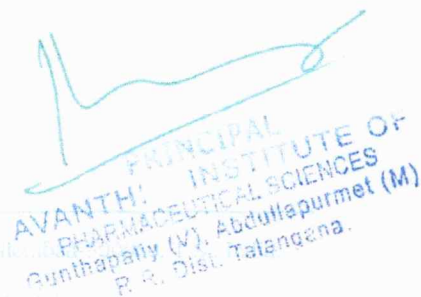 PRINCIPAL
AVANTHI INSTITUTE OF
PHARMACEUTICAL SCIENCES
Gunthapally (V), Abdullapurmet (M)
R. R. Dist. Talangana.